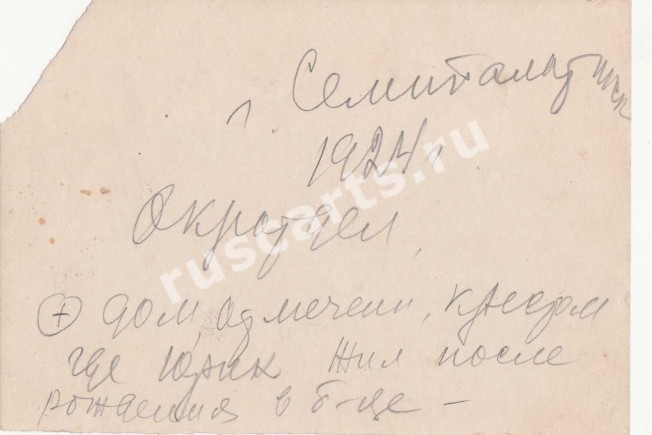 г. Семипалатинск
1924 г.
Окротдел,
⊕ дом, отмечен, крестом
где Юрик жил после
рождения в б-це –
ruscarts.ru